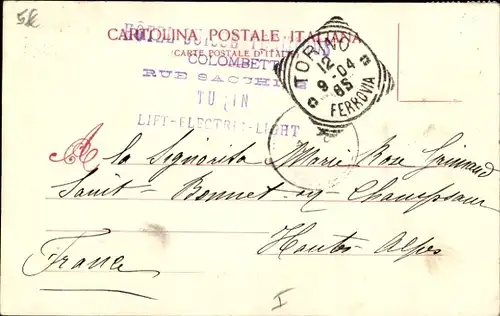 5k
CARTOLINA POSTALE ITALIANA
(CARTE POSTALE D'ITALIE)
HÔTEL SUISSE
COLOMBETT
RUE SACCHI
TURIN
LIFT-ELECTRIC-LIGHT
TORINO
12
9-04
8S
FERROVIA
A la Signorita Marie Rose Grimaud
Saint-Bonnet-en-Champsaur
Hautes-Alpes
France
I